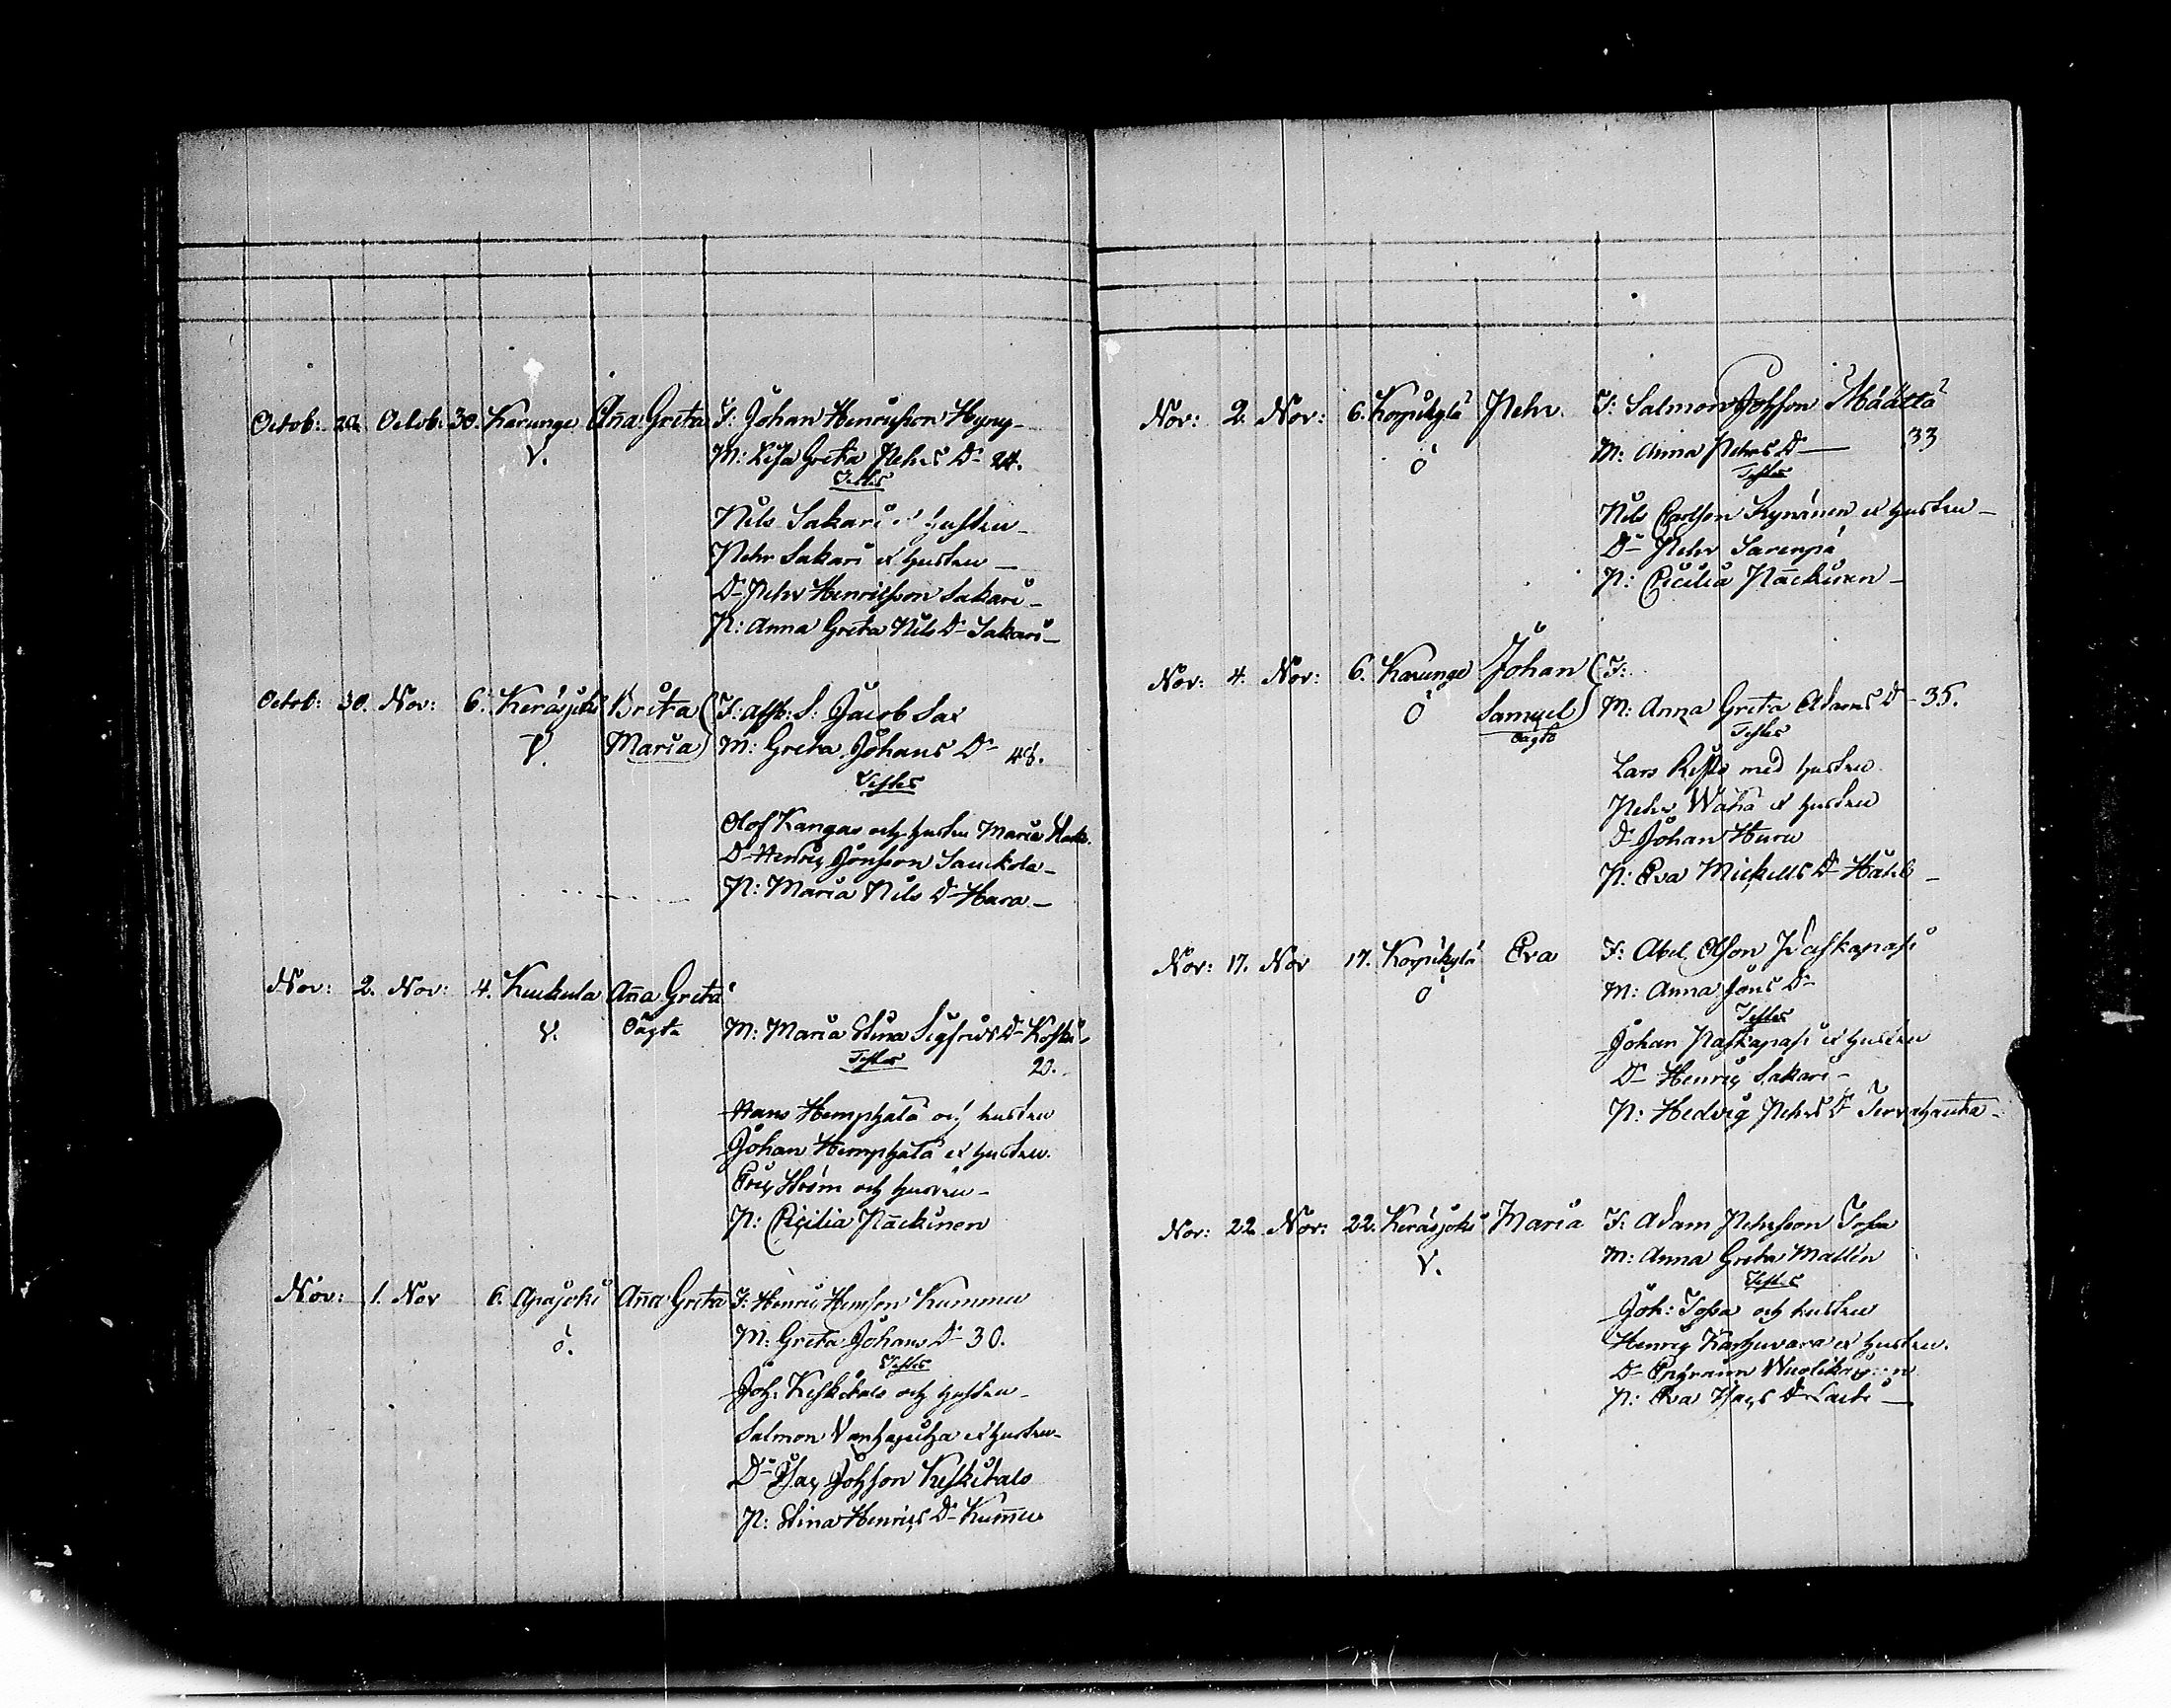 Octob: 20. Octob: 30. Karunge Aña Greta F: Johan Henricsson Hyny
V. M: Lisa Greta Pehrs D. 24.
Testes
Nils Sakari och hustru
Pehr Sakari et hustru
D. Pehr Henricsson Sakari
P: Anna Greta Nils D. Sakari
Octob: 30. Nov: 6. Keräsjoki Brita F: afsk: S: Jacob Sax
V. Maria M: Greta Johans D. 48.
Testes
Olof Kangas och hustru Maria
D. Henric Jönsson Sauckola
P: Maria Nils D. Hara
Nov: 2. Nov: 4. Kuckula Aña Greta
V. Oägta M: Maria Stina Sigfrids D. Koski
Testes 20.
Hans Hemphälä och hustru
Johan Hemphälä et hustru
Eric Ström och hustru
P: Cicilia Näckinen
Nov: 1. Nov 6. Apajoki Aña Greta F: Henric Hemson Kummu
ö. M: Greta Johans D. 30.
Testes
Joh: Keskitalo och hustru
Salmon Vanhapiha et hustru
D. Isac Johsson Keskitalo
P: Stina Henrics D. Kum̄u
Nov: 2. Nov: 6. Korpikylä Pehr F: Salmon Johsson Määttä
ö M: Anna Pehrs D. 33
Testes
Nils Carlsson Kynänen et hustru
D. Pehr Sarenpä
P: Cicilia Näckinen
Nov: 4. Nov: 6. Karunge Johan F:
Ö Samuel M: Anna Greta Adams D. 35.
oägta Testes
Lars Risto med hustru
Pehr Waha et hustru
D. Johan Huru
P: Eva Mickells D.
Nov: 17. Nov 17. Korpikylä Eva F: Abel Olsson Paskapasi
ö M: Anna Jöns D.
Testes
Johan Paskapasi et hustru
D. Henric Sakari
P: Hedvig Pehrs D.
Nov: 22. Nov: 22. Keräsjoki Maria F: Adam Pehrsson Tossa
V. M: Anna Greta Mallén
Testes
Joh: Tossa och hustru
Henric Karhuvara et hustru.
D. Ephraim
P: Eva Isacs D. Lasti